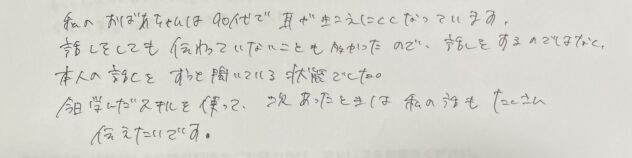 私のおばあちゃんは90代で耳が聞こえにくくなっています。
話しをしても伝わっていないことも多かったので、話しをするのではなく、
本人の話しをずっと聞いている状態でした。
今日学んだスキルを使って、次あったときは私の話もたくさん
伝えたいです。